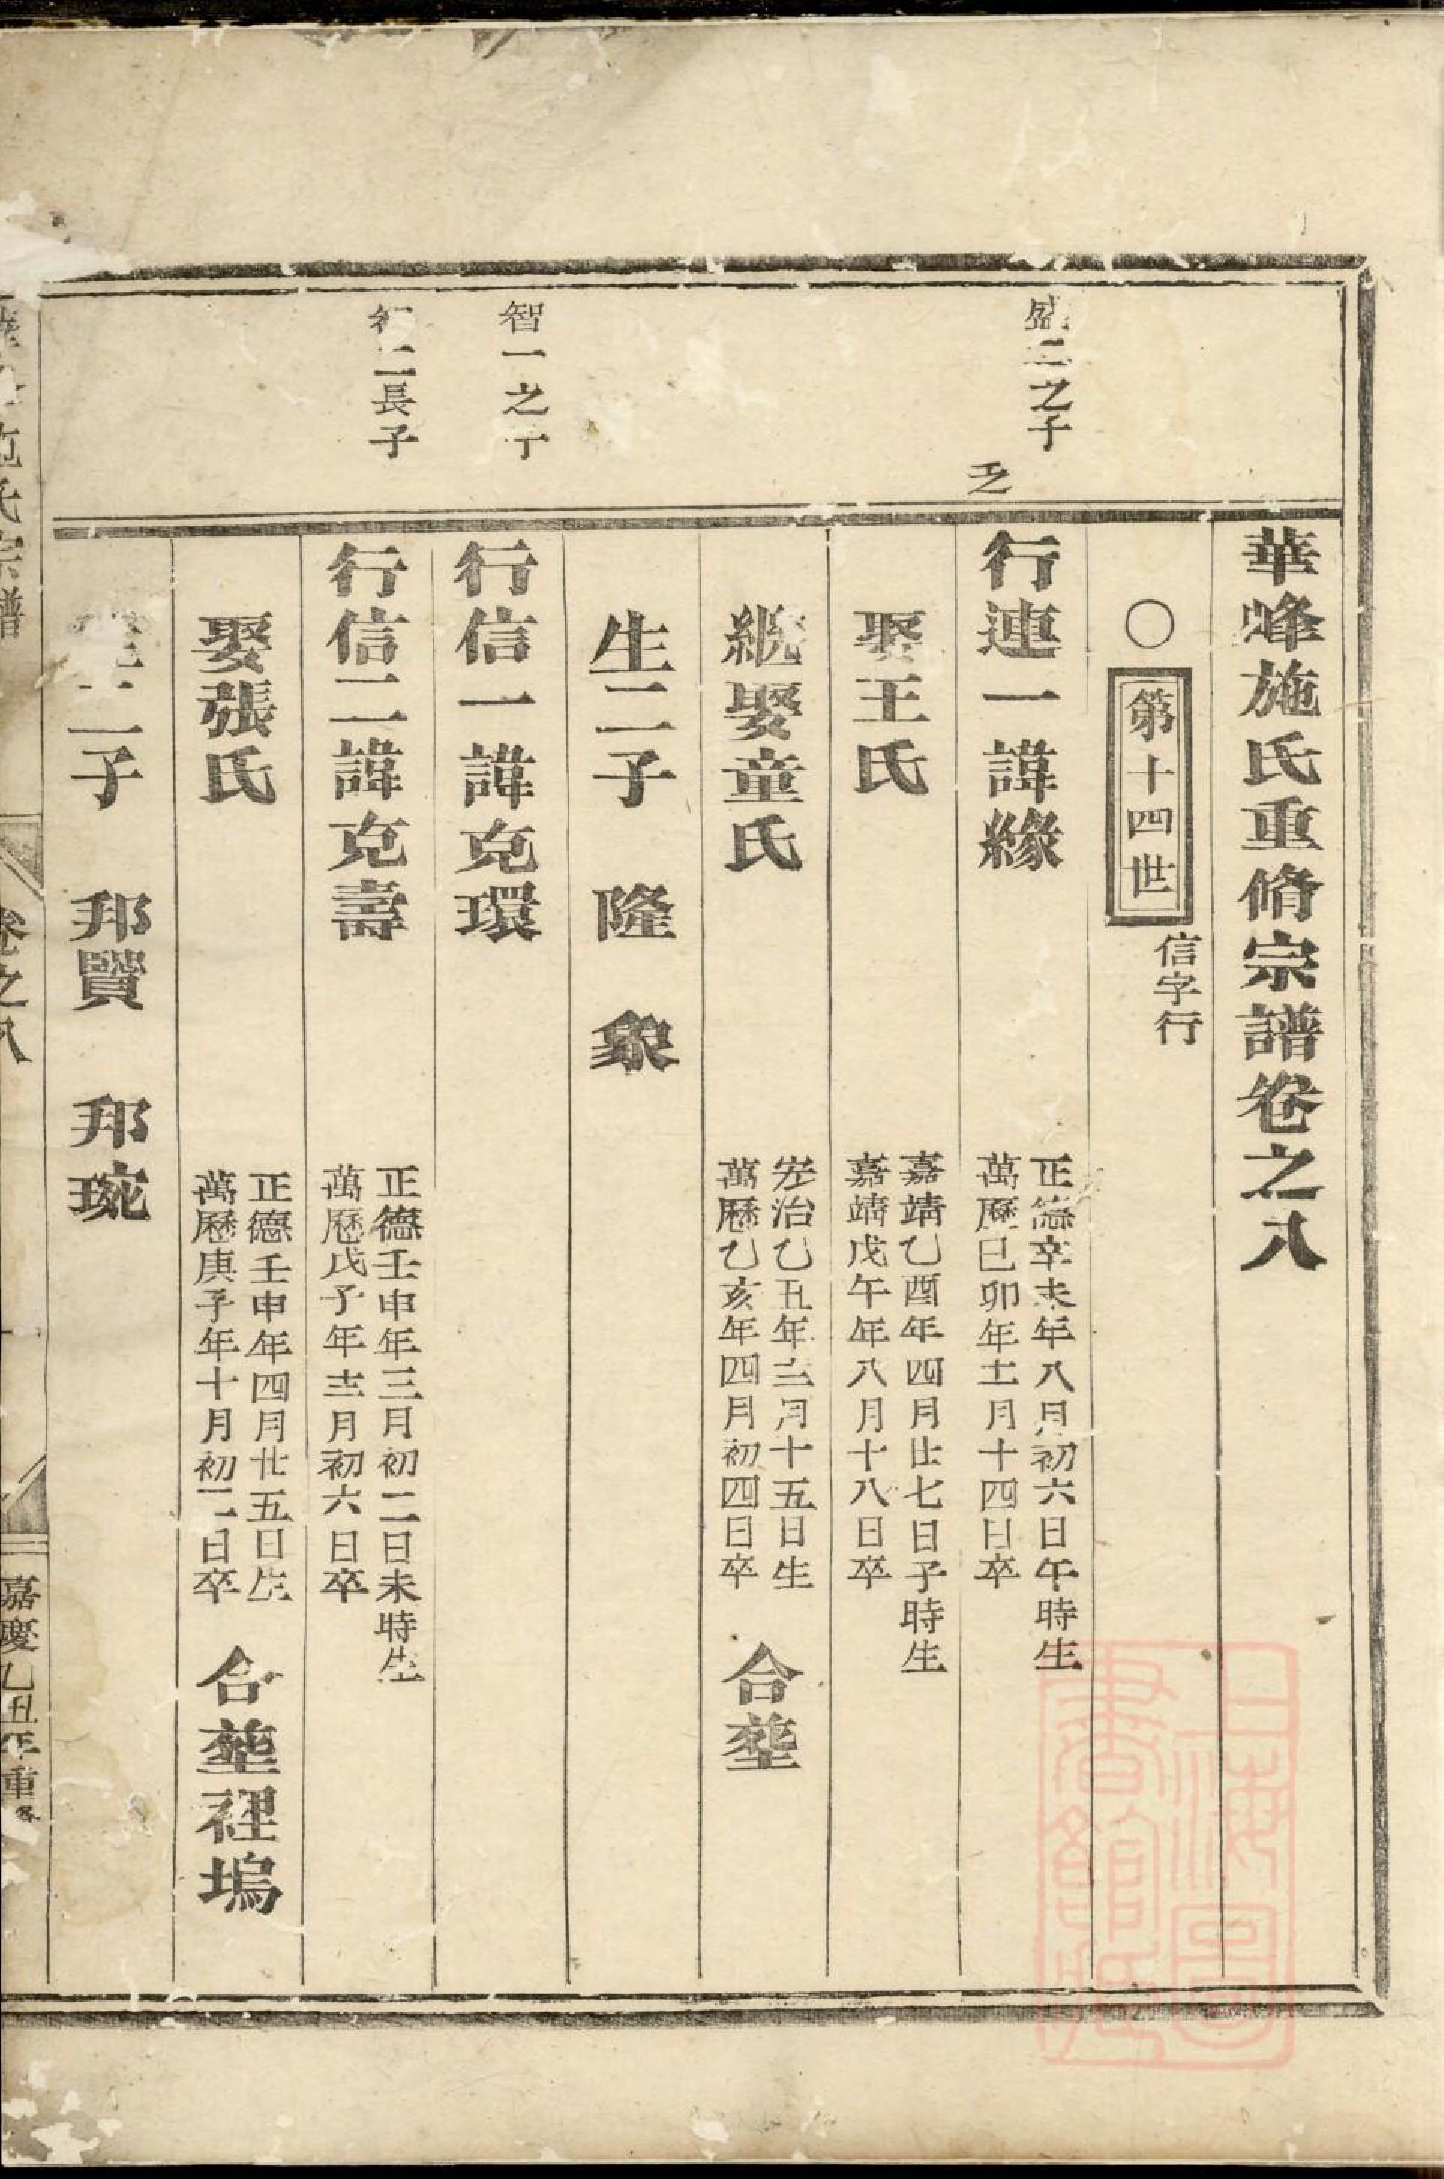 華烽施氏重脩宗譜卷之八
○第十四世
信字行
盛二之子
行連一諱緣
正德辛未年八月初六日午時生
萬歷已卯年十一月十四日卒
娶王氏
嘉靖乙酉年四月廿七日子時生
嘉靖戊午年八月十八日卒
継娶童氏
宏治乙丑年十二月十五日生
萬歷乙亥年四月初四日卒
合塟
生二子 隆 象
智一之子
行信一諱克環
二長子
行信二諱克壽
正德壬申年三月初二日未時生
萬歷戊子年十二月初六日卒
娶張氏
正德壬申年四月廿五日生
萬歷庚子年十月初二日卒
合塟裡塢
生二子 邦賢 邦琬
施氏宗譜
卷之八
嘉慶乙丑年重修
上海圖書館藏